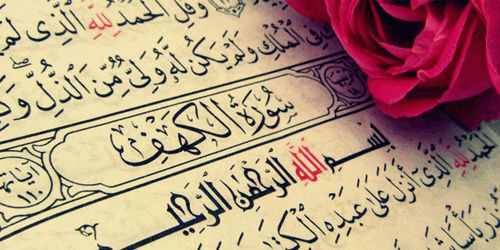 وَقُلِ الْحَمْدُ لِلَّهِ الَّذِي لَمْ
فِي الْمُلْكِ وَلَمْ يَكُن لَّهُ وَلِيٌّ مِّنَ الذُّلِّ
سُورَةُ الْكَهْفِ
بِسْمِ اللَّهِ الرَّحْمَٰنِ الرَّحِيمِ
الْحَمْدُ لِلَّهِ الَّذِي أَنزَلَ عَلَىٰ عَبْدِهِ